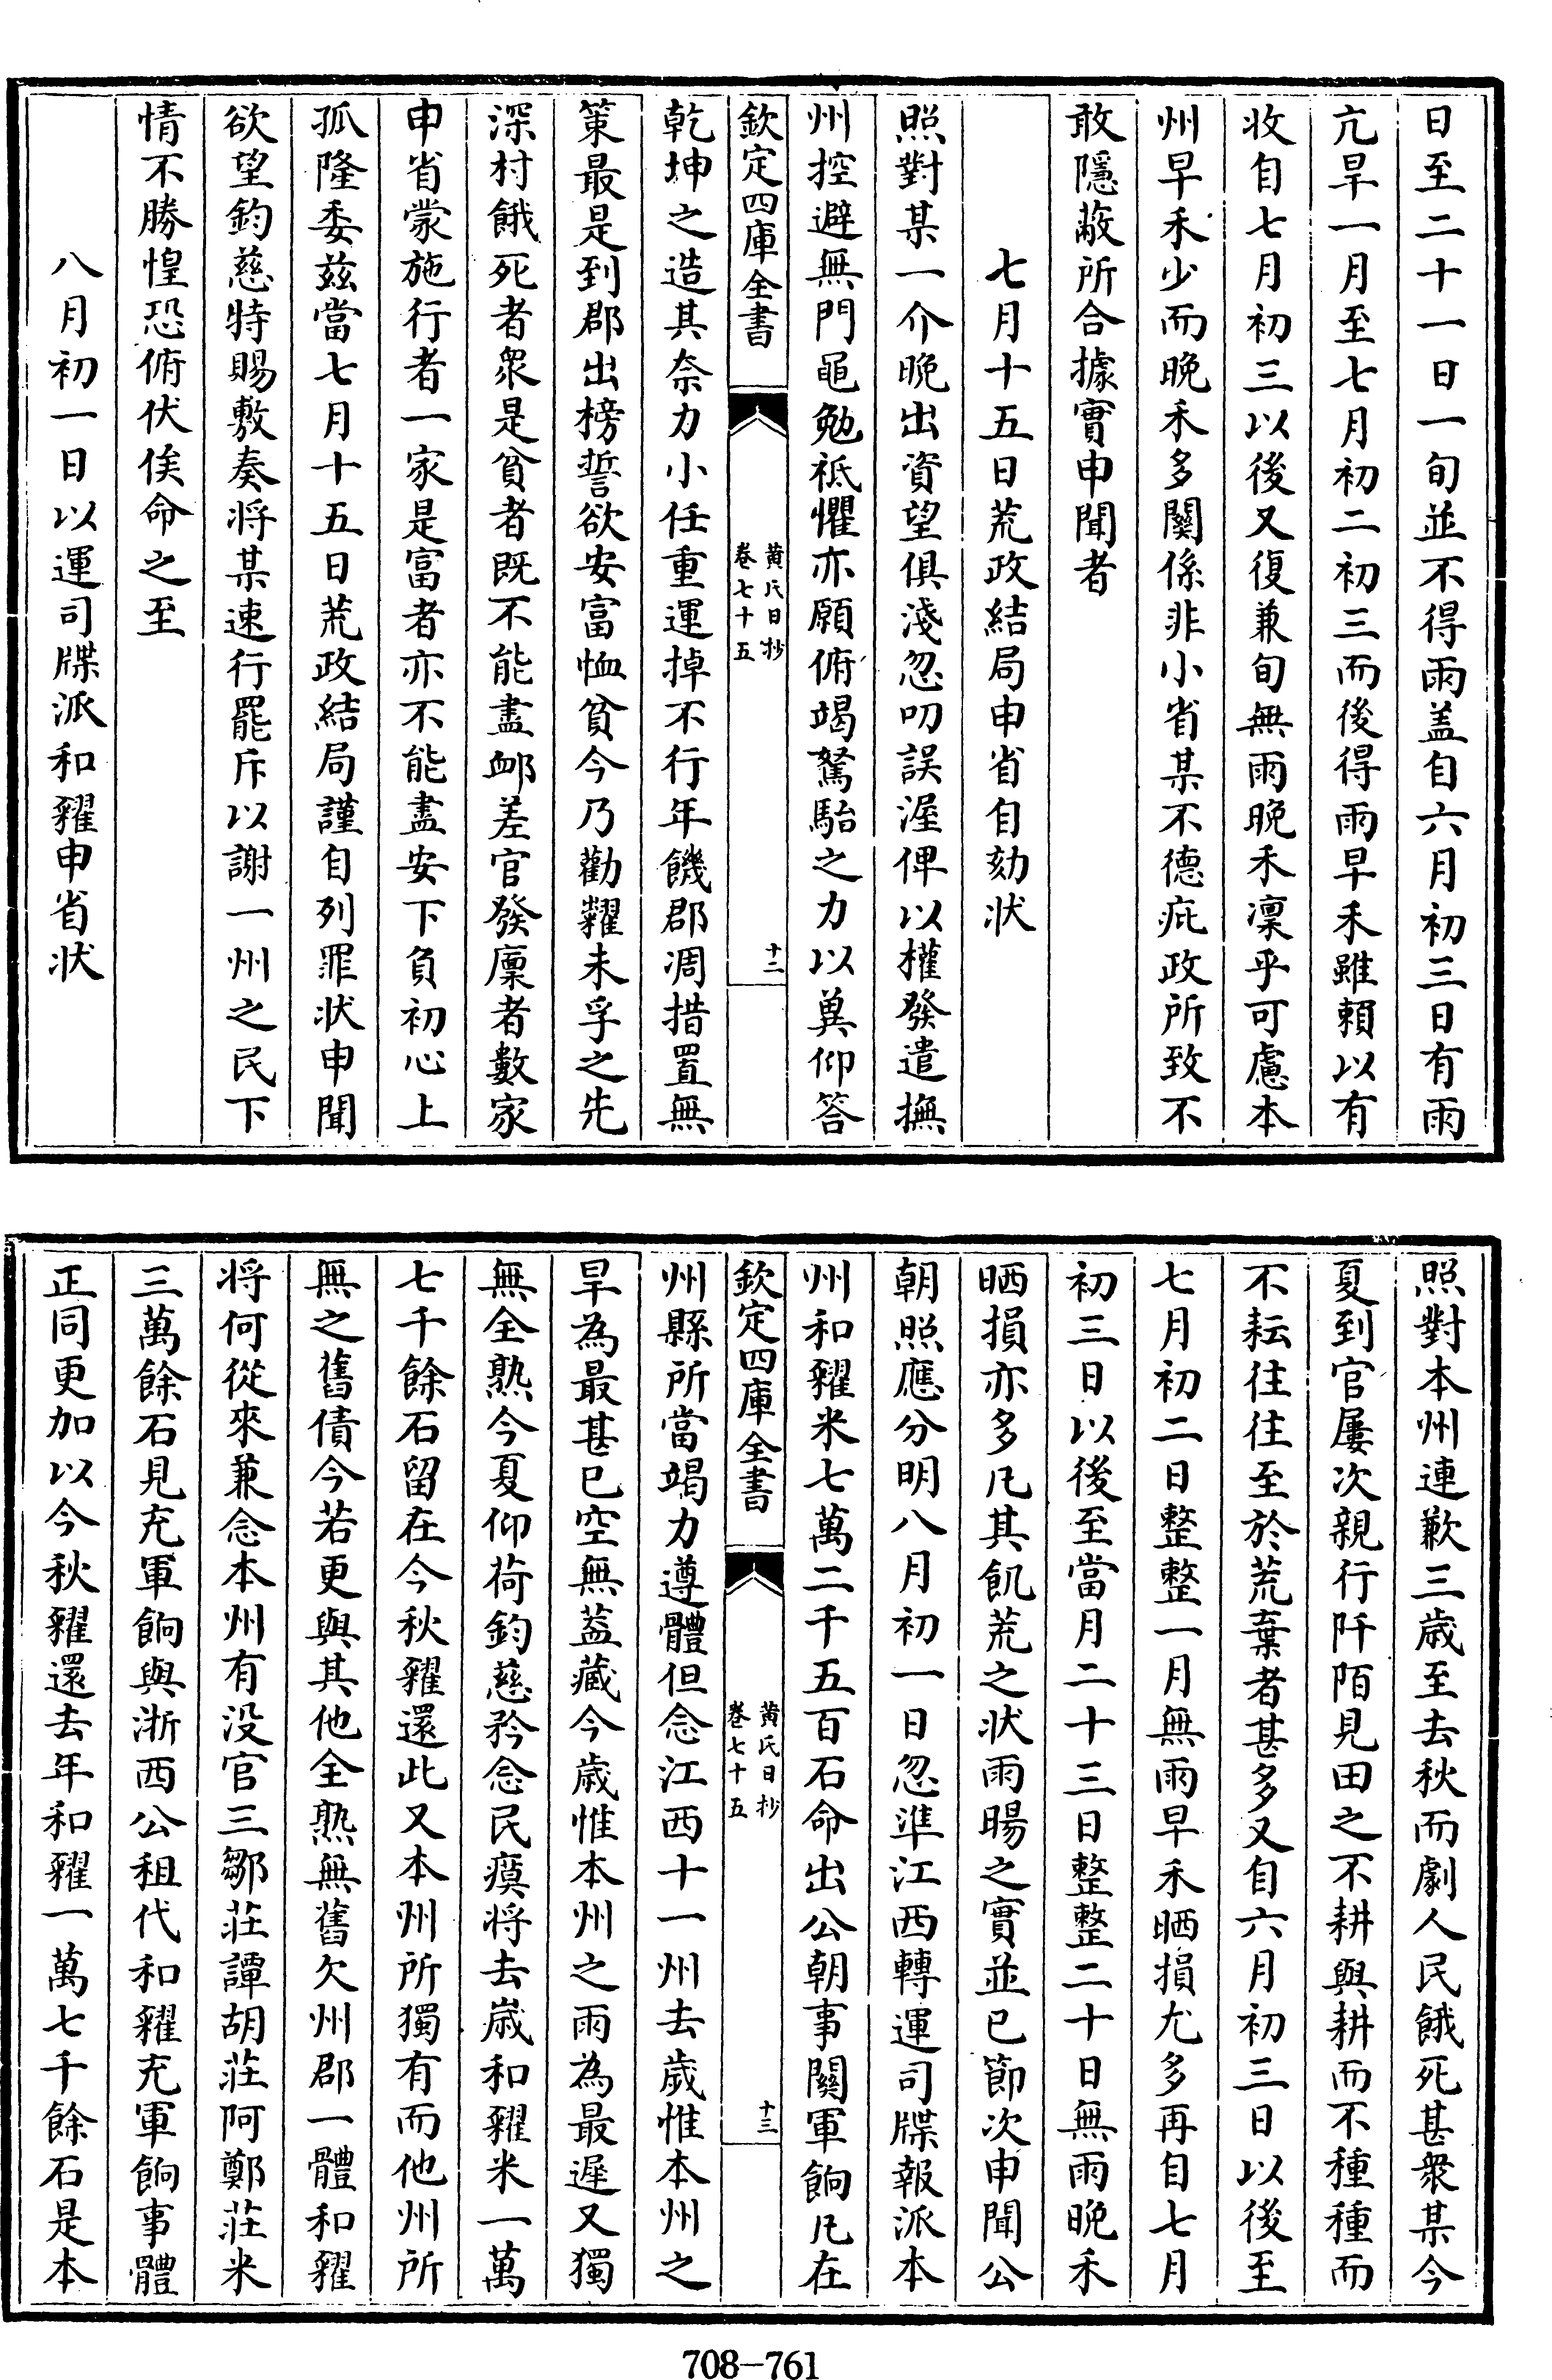 日至二十一日一旬並不得雨盖自六月初三日有雨
亢旱一月至七月初二初三而後得雨早禾雖賴以有
收自七月初三以後又復兼旬無雨晚禾凜乎可慮本
州早禾少而晚禾多關係非小省某不德疵政所致不
敢隱蔽所合據實申聞者
七月十五日荒政結局申省自劾狀
照對某一介晚出資望俱淺忽叨誤渥俾以權發遣撫
州控避無門黽勉祇懼亦願俯竭駑駘之力以冀仰答
欽定四庫全書
黄氏日抄
卷七十五
十二
乾坤之造其奈力小任重運掉不行年饑郡凋措置無
策最是到郡出榜誓欲安富恤貧今乃勸糶未孚之先
深村餓死者衆是貧者既不能盡䘏差官發廩者數家
申省蒙施行者一家是富者亦不能盡安下負初心上
孤隆委兹當七月十五日荒政結局謹自列罪狀申聞
欲望鈞慈特賜敷奏将某速行罷斥以謝一州之民下
情不勝惶恐俯伏俟命之至
八月初一日以運司牒派和糴申省狀
照對本州連歉三歲至去秋而劇人民餓死甚衆某今
夏到官屢次親行阡陌見田之不耕與耕而不種種而
不耘往往至於荒棄者甚多又自六月初三日以後至
七月初二日整整一月無雨早禾晒損尤多再自七月
初三日以後至當月二十三日整整二十日無雨晚禾
晒損亦多凡其飢荒之狀雨暘之實並已節次申聞公
朝照應分明八月初一日忽準江西轉運司牒報派本
州和糴米七萬二千五百石命出公朝事關軍餉凡在
欽定四庫全書
黄氏日抄
卷七十五
十三
州縣所當竭力遵體但念江西十一州去歲惟本州之
旱為最甚已空無蓋藏今歲惟本州之雨為最遲又獨
無全熟今夏仰荷鈞慈矜念民瘼将去歲和糴米一萬
七千餘石留在今秋糴還此又本州所獨有而他州所
無之舊債今若更與其他全熟無舊欠州郡一體和糴
将何從來兼念本州有没官三鄒莊譚胡莊阿鄭莊米
三萬餘石見充軍餉與浙西公租代和糴充軍餉事體
正同更加以今秋糴還去年和糴一萬七千餘石是本
708-761